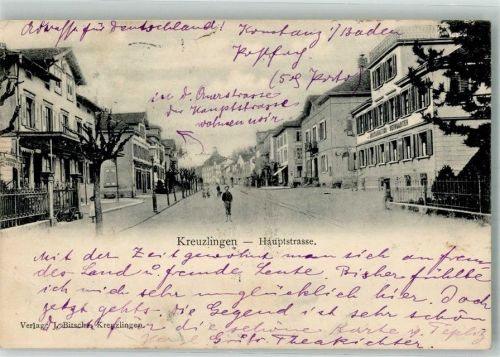 Adresse für Deutschland! Konstanz i/Baden
Postfach
(5 Porto)
in d. Querstrasse
der Hauptstrasse
wohnen wir
Kreuzlingen — Hauptstrasse.
Mit der Zeit gewöhnt man sich an fremdes Land u. fremde Leute. Bisher fühlte
ich mich sehr unglücklich hier. Doch
jetzt gehts. Die Gegend ist sehr schön
für die schöne Karte v. Teplitz
Verlag: J. Bitsche, Kreuzlingen.